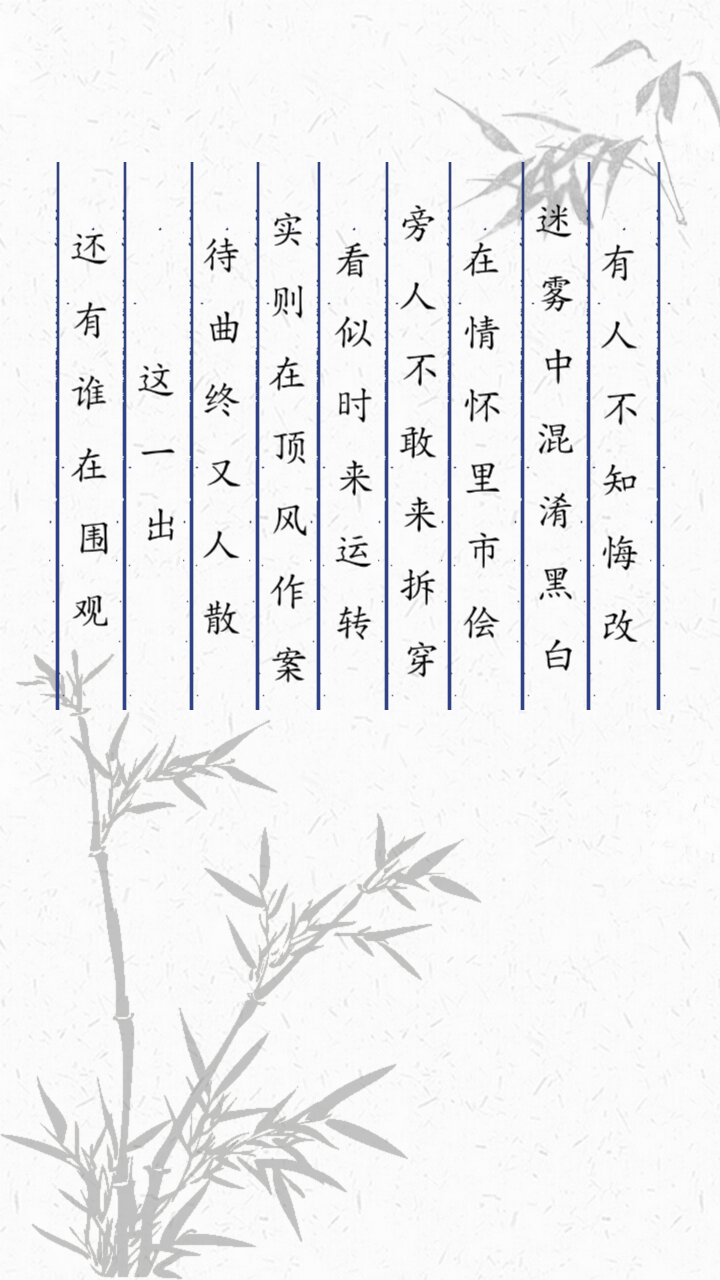 有人不知悔改
迷雾中混淆黑白
在情怀里市侩
旁人不敢来拆穿
看似时来运转
实则在顶风作案
待曲终又人散
这一出
还有谁在围观